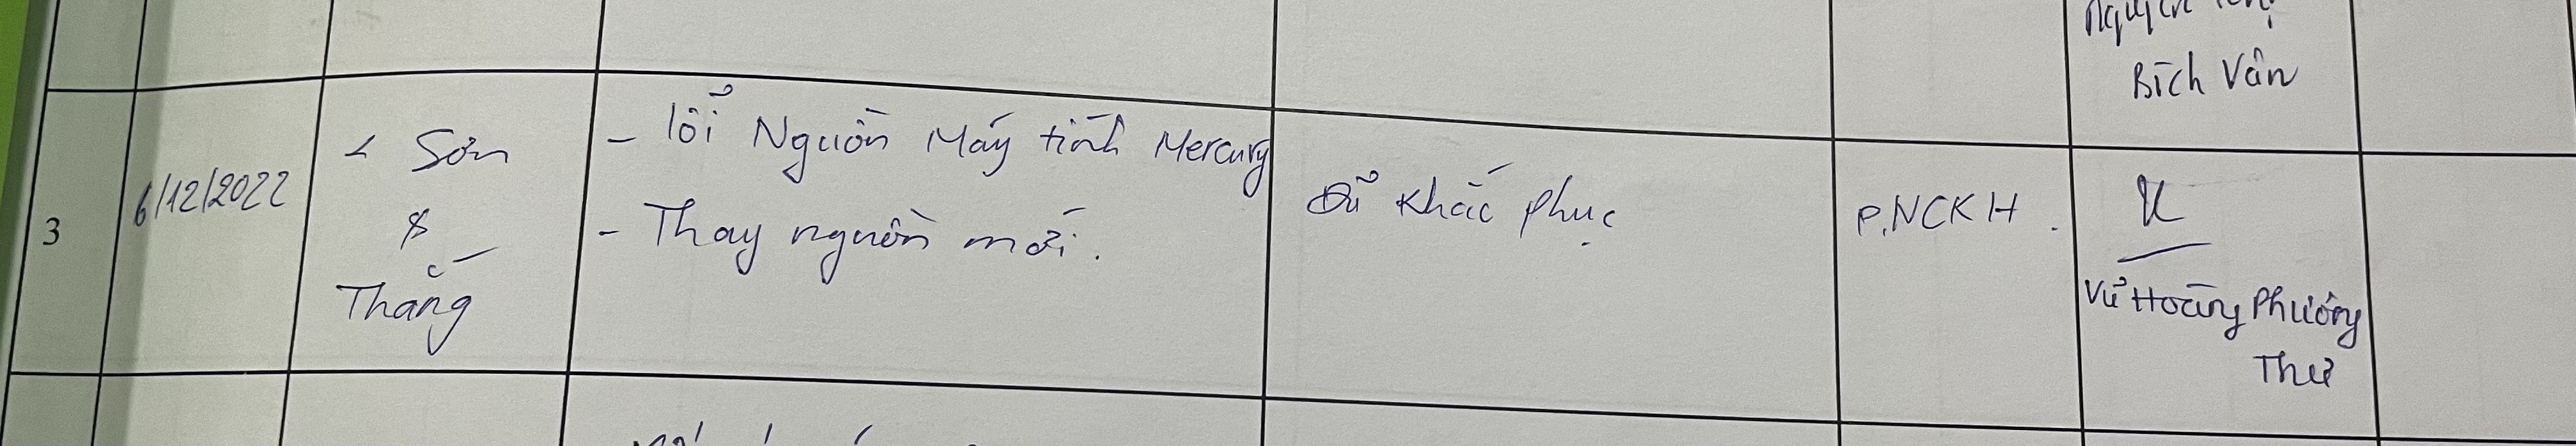 Bích Vân
3
6/12/2022
Sơn
&
Thắng
- lỗi Nguồn Máy tính Mercury
- Thay nguồn mới.
Đã khắc phục
P.NCKH.
Vũ Hoàng Phương
Thư